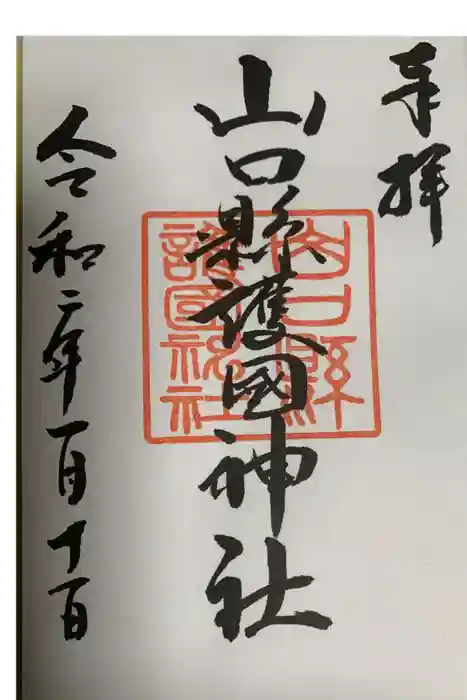 奉拝
山口縣護國神社
山口縣
護國神社
令和二年一月十日